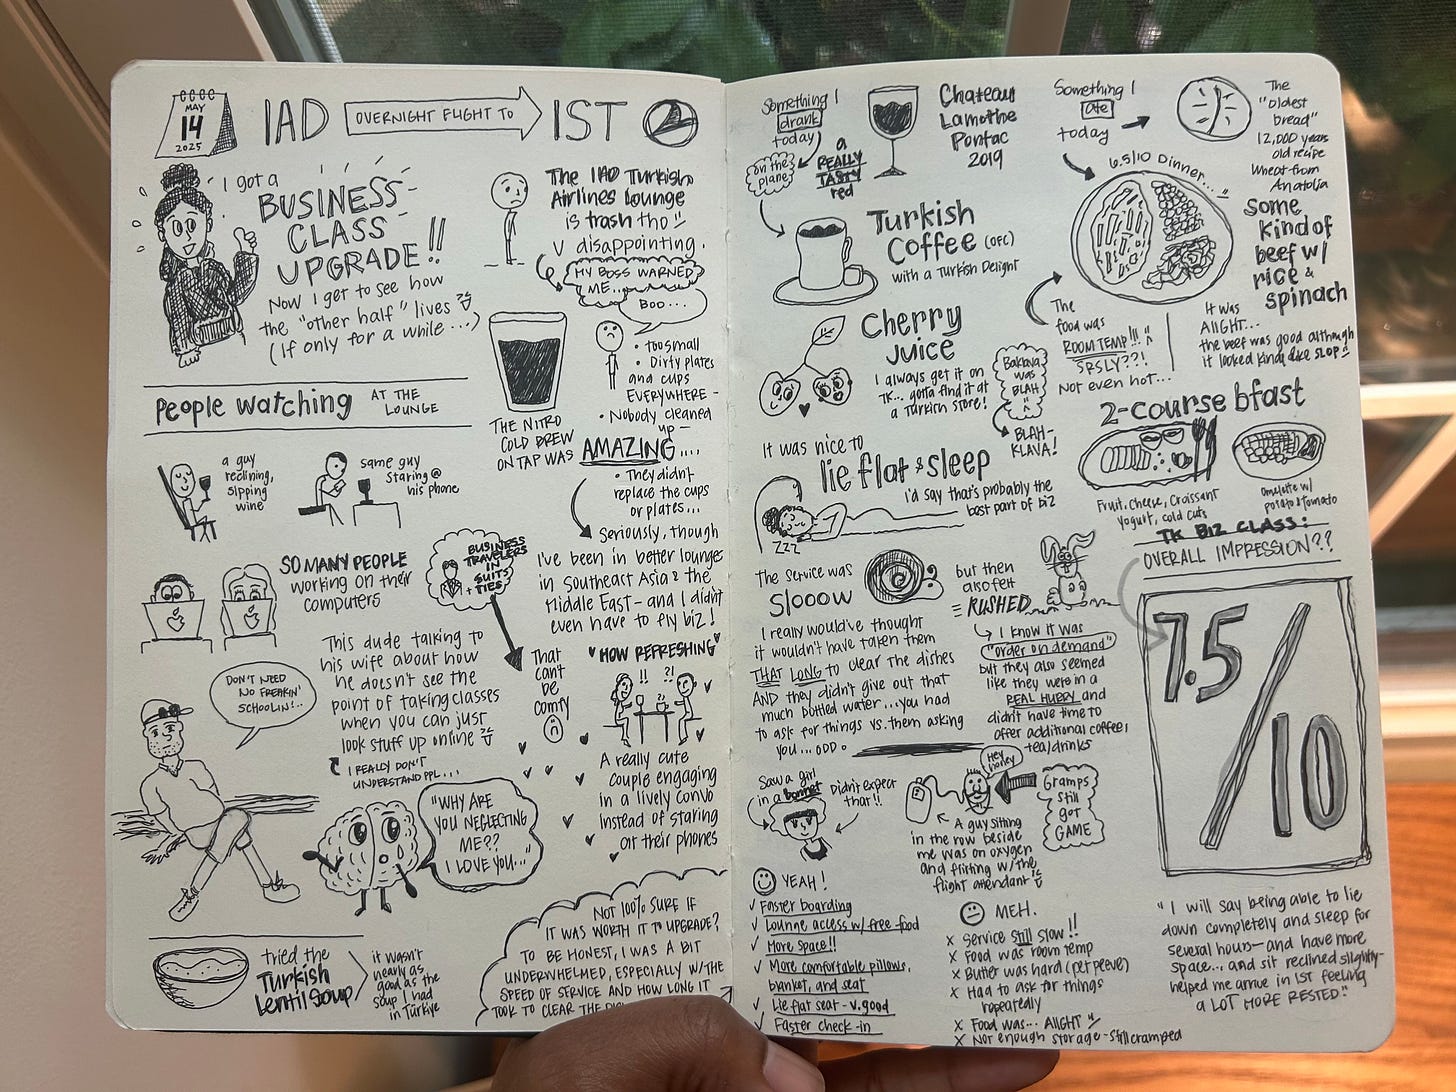 MAY
14
2025
IAD
OVERNIGHT FLIGHT TO
IST
2
I got a
BUSINESS
CLASS
UPGRADE!!
Now I get to see how
the "other half" lives
(If only for a while...)
The IAD Turkish
Airlines lounge
is trash tho
V disappointing.
MY BOSS WARNED
ME...
BOO...
• too small
• Dirty plates
and cups
EVERYWHERE -
• Nobody cleaned
up -
THE NITRO
COLD BREW
ON TAP WAS
AMAZING....
• They didn't
replace the cups
or plates...
Seriously, though
I've been in better lounges
in Southeast Asia & the
Middle East - and I didn't
even have to fly biz!
People watching
AT THE
LOUNGE
a guy
reclining,
sipping
wine
same guy
staring @
his phone
SO MANY PEOPLE
working on their
computers
BUSINESS
TRAVELERS
IN
SUITS
+ TIES!
That
can't
be
comfy
This dude talking to
his wife about how
he doesn't see the
point of taking classes
when you can just
look stuff up online
I REALLY DON'T
UNDERSTAND PPL...
DON'T NEED
NO FREAKIN'
SCHOOLIN'!..
"WHY ARE
YOU NEGLECTING
ME??
I LOVE YOU..."
HOW REFRESHING
!!
?!
A really cute
couple engaging
in a lively convo
instead of staring
at their phones
tried the
Turkish
Lentil Soup
it wasn't
nearly as
good as the
soup I had
in Türkiye
NOT 100% SURE IF
IT WAS WORTH IT TO UPGRADE?
TO BE HONEST, I WAS A BIT
UNDERWHELMED, ESPECIALLY W/THE
SPEED OF SERVICE AND HOW LONG IT
TOOK TO CLEAR THE
Something I
drank
today
on the
plane
a
REALLY
TASTY
red
Chateau
Lamothe
Pontac
2019
Turkish
Coffee (OFC)
with a Turkish Delight
Cherry
Juice
I always get it on
TK... gotta find it at
a Turkish store!
Baklava
was
BLAH
BLAH-
KLAVA!
Something I
ate
today
The
"oldest
bread"
12,000 years
old recipe
Wheat from
Anatolia
6.5/10 Dinner...
Some
kind of
beef w/
rice &
spinach
The
food was
ROOM TEMP!!!
SRSLY??!
Not even hot...
It was
AIIGHT...
the beef was good although
it looked kinda like SLOP!!
2-course bfast
Fruit, Cheese, Croissant
Yogurt, cold cuts
Omelette w/
potato & tomato
It was nice to
lie flat & sleep
I'd say that's probably the
best part of biz
ZZZ
The service was
SLOOOW
I really would've thought
it wouldn't have taken them
THAT LONG to clear the dishes
AND they didn't give out that
much bottled water... you had
to ask for things vs. them asking
you... ODD.
but then
also felt
RUSHED
I know it was
"order on demand"
but they also seemed
like they were in a
REAL HURRY and
didn't have time to
offer additional coffee,
tea/drinks
TK BIZ CLASS:
OVERALL IMPRESSION??
7.5/10
Saw a girl
in a bonnet
Didn't expect
that!!
Hey
honey
Gramps
still
got
GAME
A guy sitting
in the row beside
me was on oxygen
and flirting w/the
flight attendant
YEAH!
✓ Faster boarding
✓ Lounge access w/ free food
✓ More space!!
✓ More comfortable pillows,
blanket, and seat
✓ Lie flat seat - v. good
✓ Faster check-in
MEH.
X Service still slow!!
X Food was room temp
X Butter was hard (pet peeve)
X Had to ask for things
repeatedly
X Food was... AIIGHT
X Not enough storage - still cramped
"I will say being able to lie
down completely and sleep for
several hours - and have more
space... and sit reclined slightly -
helped me arrive in IST feeling
a LOT MORE RESTED."